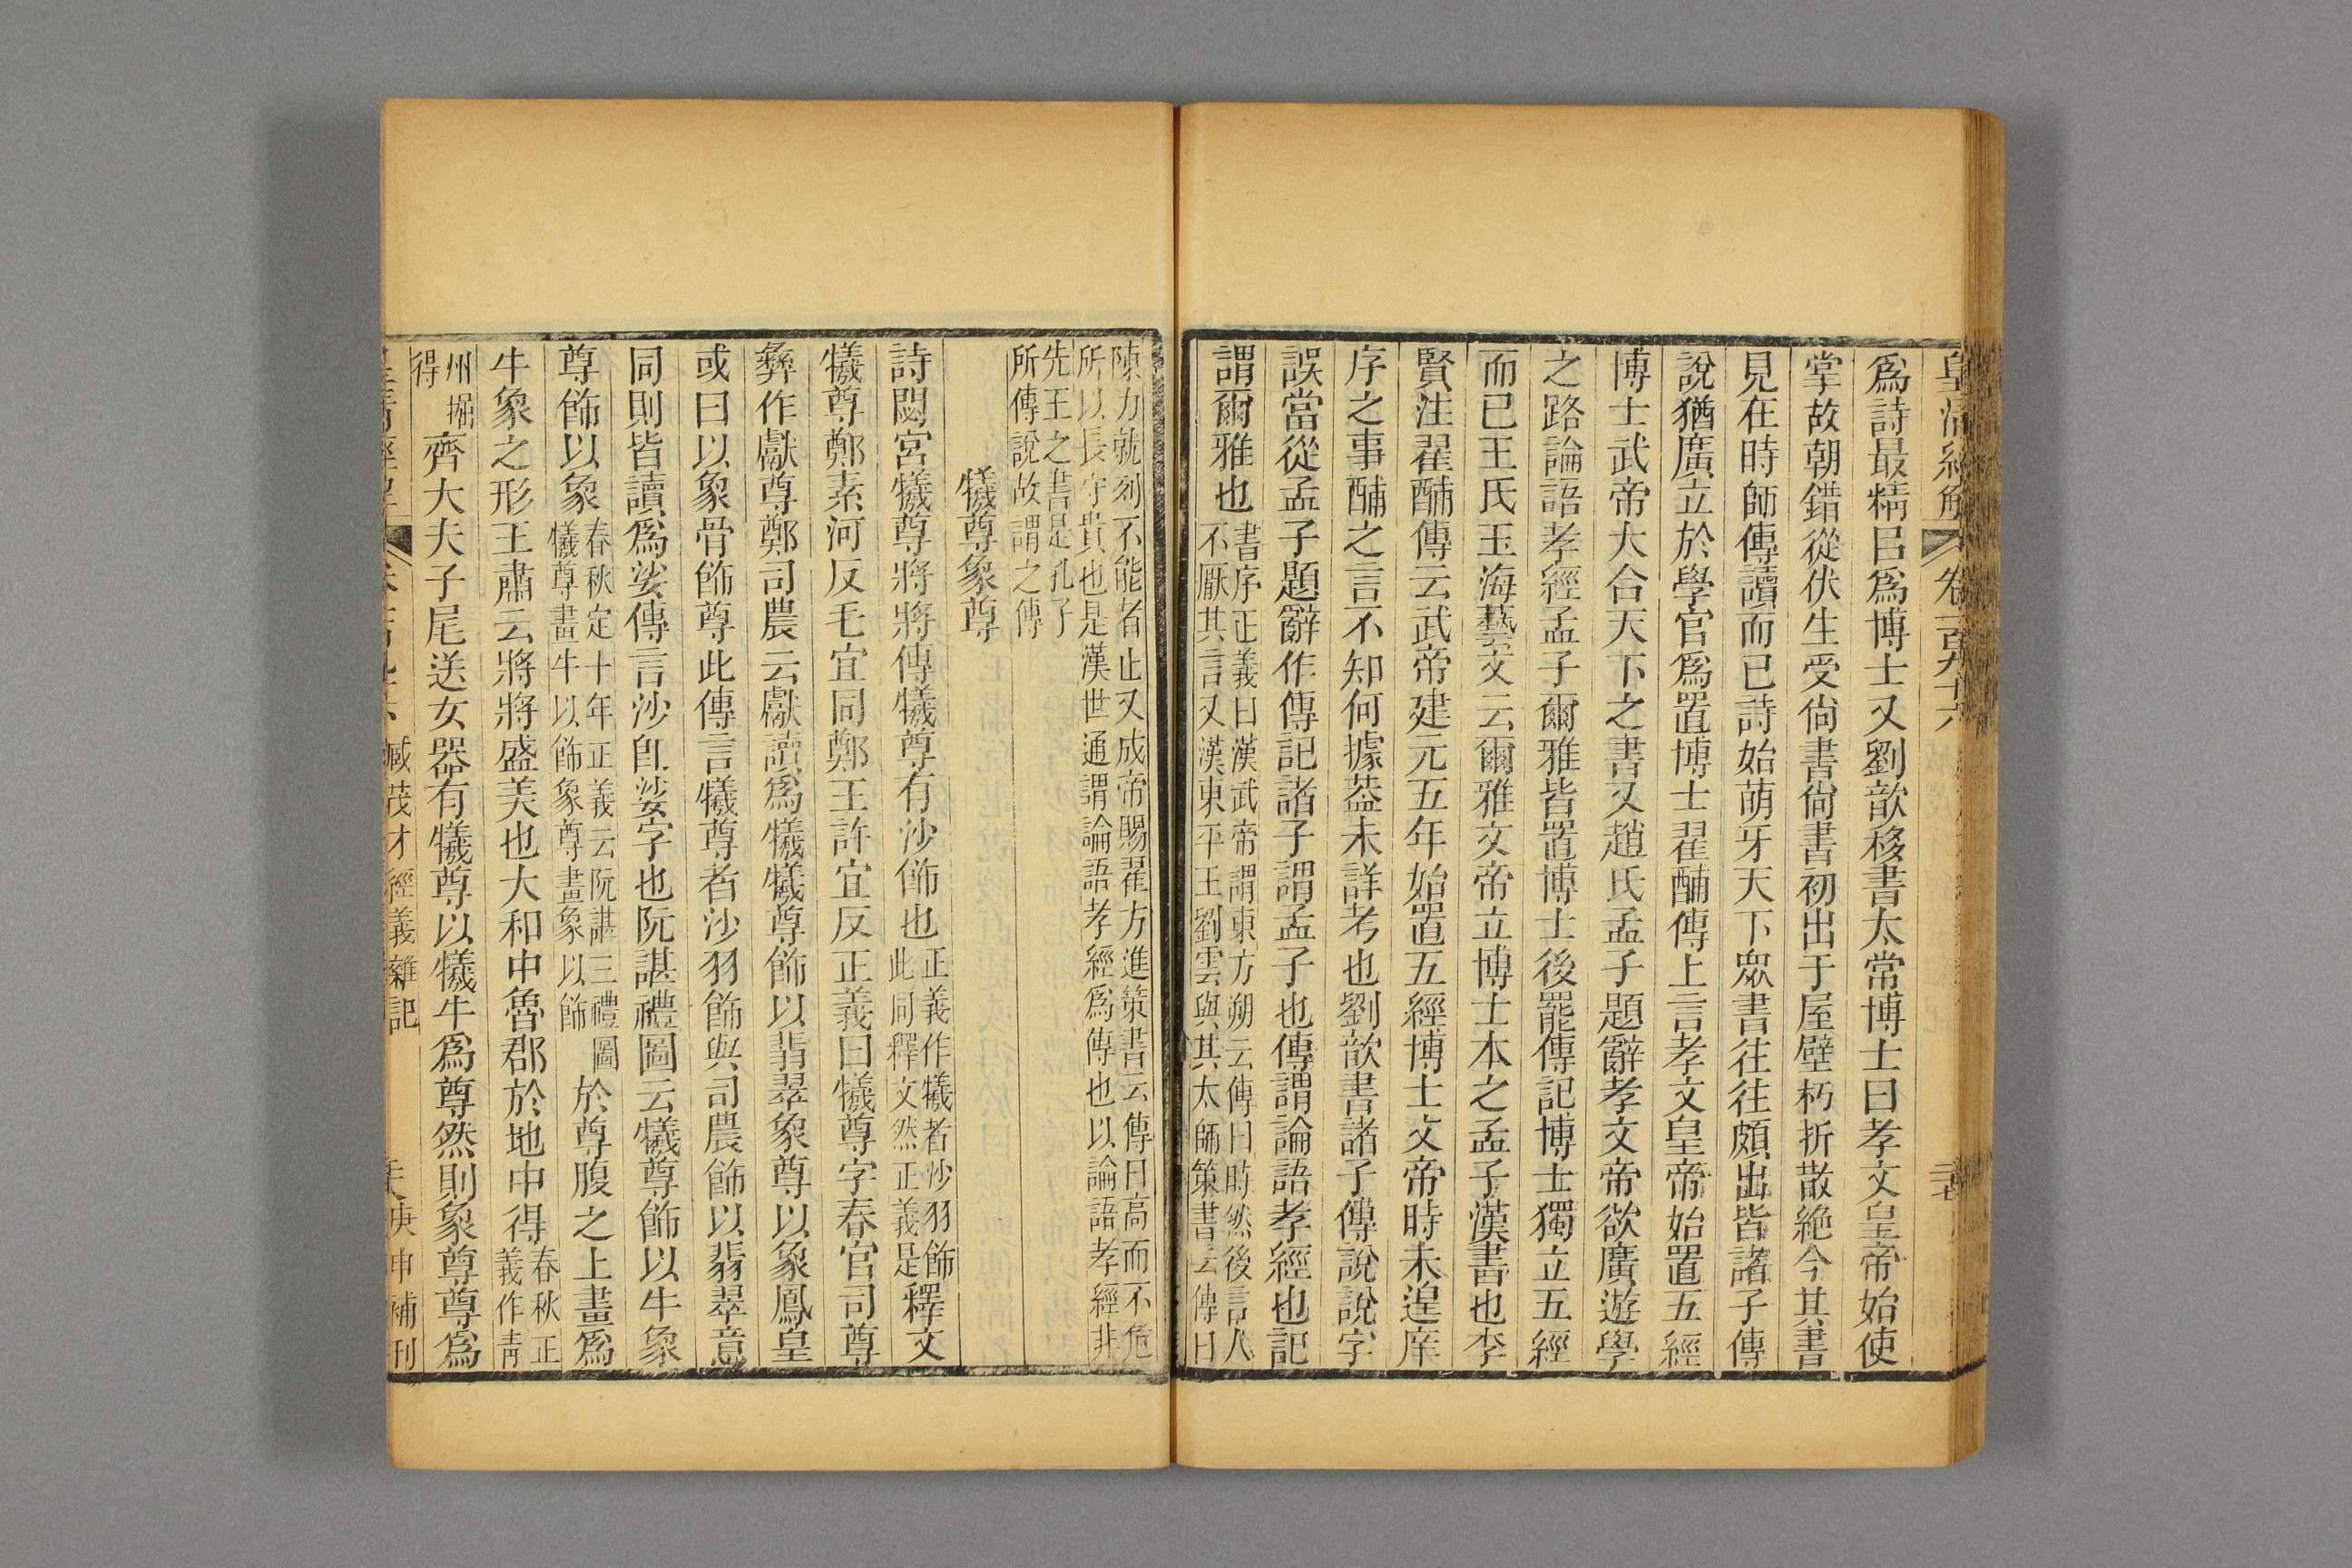 皇清經解 卷一百九十六
爲詩最精㠯爲博士又劉歆移書太常博士曰孝文皇帝始使
掌故朝錯從伏生受尙書尙書初出于屋壁朽折散絶今其書
見在時師傳讀而已詩始萌牙天下眾書往往頗出皆諸子傳
說猶廣立於學官爲置博士翟酺傳上言孝文皇帝始置五經
博士武帝大合天下之書又趙氏孟子題辭孝文帝欲廣遊學
之路論語孝經孟子爾雅皆置博士後罷傳記博士獨立五經
而已王氏玉海藝文云爾雅文帝立博士本之孟子漢書也李
賢注翟酺傳云武帝建元五年始置五經博士文帝時未遑庠
序之事酺之言不知何據葢未詳考也劉歆書諸子傳說說字
誤當從孟子題辭作傳記諸子謂孟子也傳謂論語孝經也記
謂爾雅也
書序正義曰漢武帝謂東方朔云傳曰時然後言人
不厭其言又漢東平王劉雲與其太師策書云傳曰
陳力就列不能者止又成帝賜翟方進策書云傳曰高而不危
所以長守貴也是漢世通謂論語孝經爲傳也以論語孝經非
先王之書是孔子
所傳說故謂之傳
犧尊象尊
詩閟宮犧尊將將傳犧尊有沙飾也
正義作犧者沙羽飾
此同釋文然正義是
釋文
犧尊鄭素河反毛宜同鄭王許宜反正義曰犧尊字春官司尊
彝作獻尊鄭司農云獻讀爲犧犧尊飾以翡翠象尊以象鳳皇
或曰以象骨飾尊此傳言犧尊者沙羽飾與司農飾以翡翠意
同則皆讀爲娑傳言沙卽娑字也阮諶禮圖云犧尊飾以牛象
尊飾以象
春秋定十年正義云阮諶三禮圖
犧尊畫牛以飾象尊畫象以飾
於尊腹之上畫爲
牛象之形王肅云將將盛美也大和中魯郡於地中得
春秋正
義作靑
州掘
得
齊大夫子尾送女器有犧尊以犧牛爲尊然則象尊尊爲
臧茂才經義雜記
庚申補刊